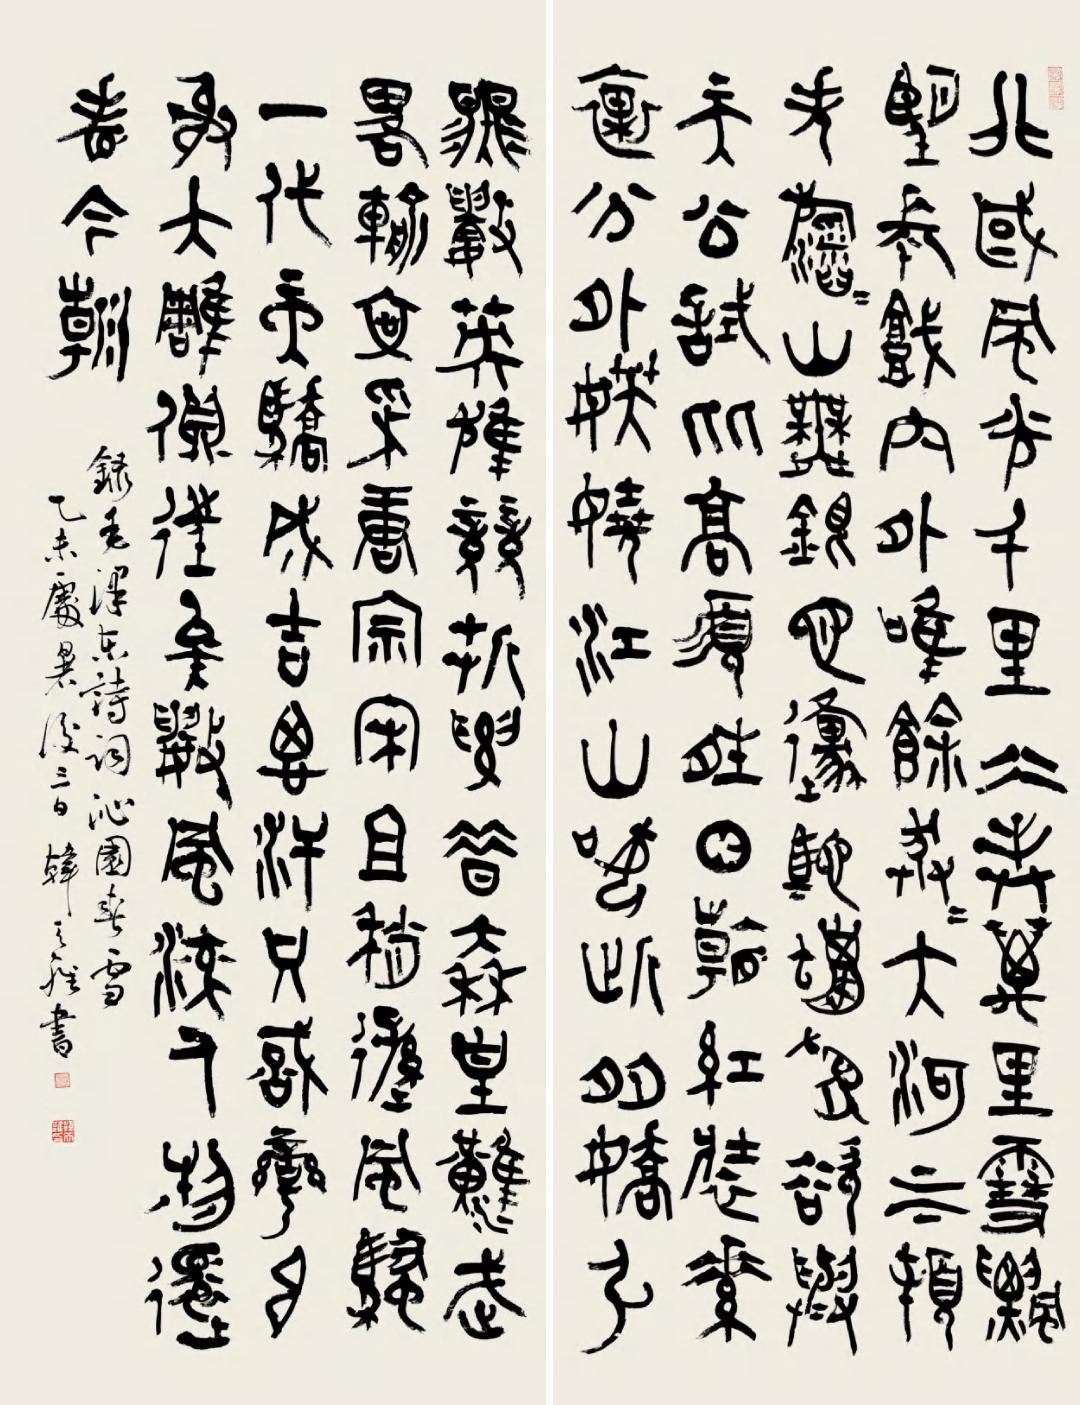 北國風光千里冰封萬里雪飄
望長城內外唯餘莽〻大河上下頓
失滔〻山舞銀蛇原馳蠟象欲與
天公試比高須晴日看紅裝素
裹分外妖嬈江山如此多嬌引
無數英雄競折腰惜秦皇漢武
略輸文采唐宗宋祖稍遜風騷
一代天驕成吉思汗只識彎弓
射大雕俱往矣數風流人物還
看今朝
錄毛澤東詩詞沁園春雪
乙未處暑後三日韓天雍書